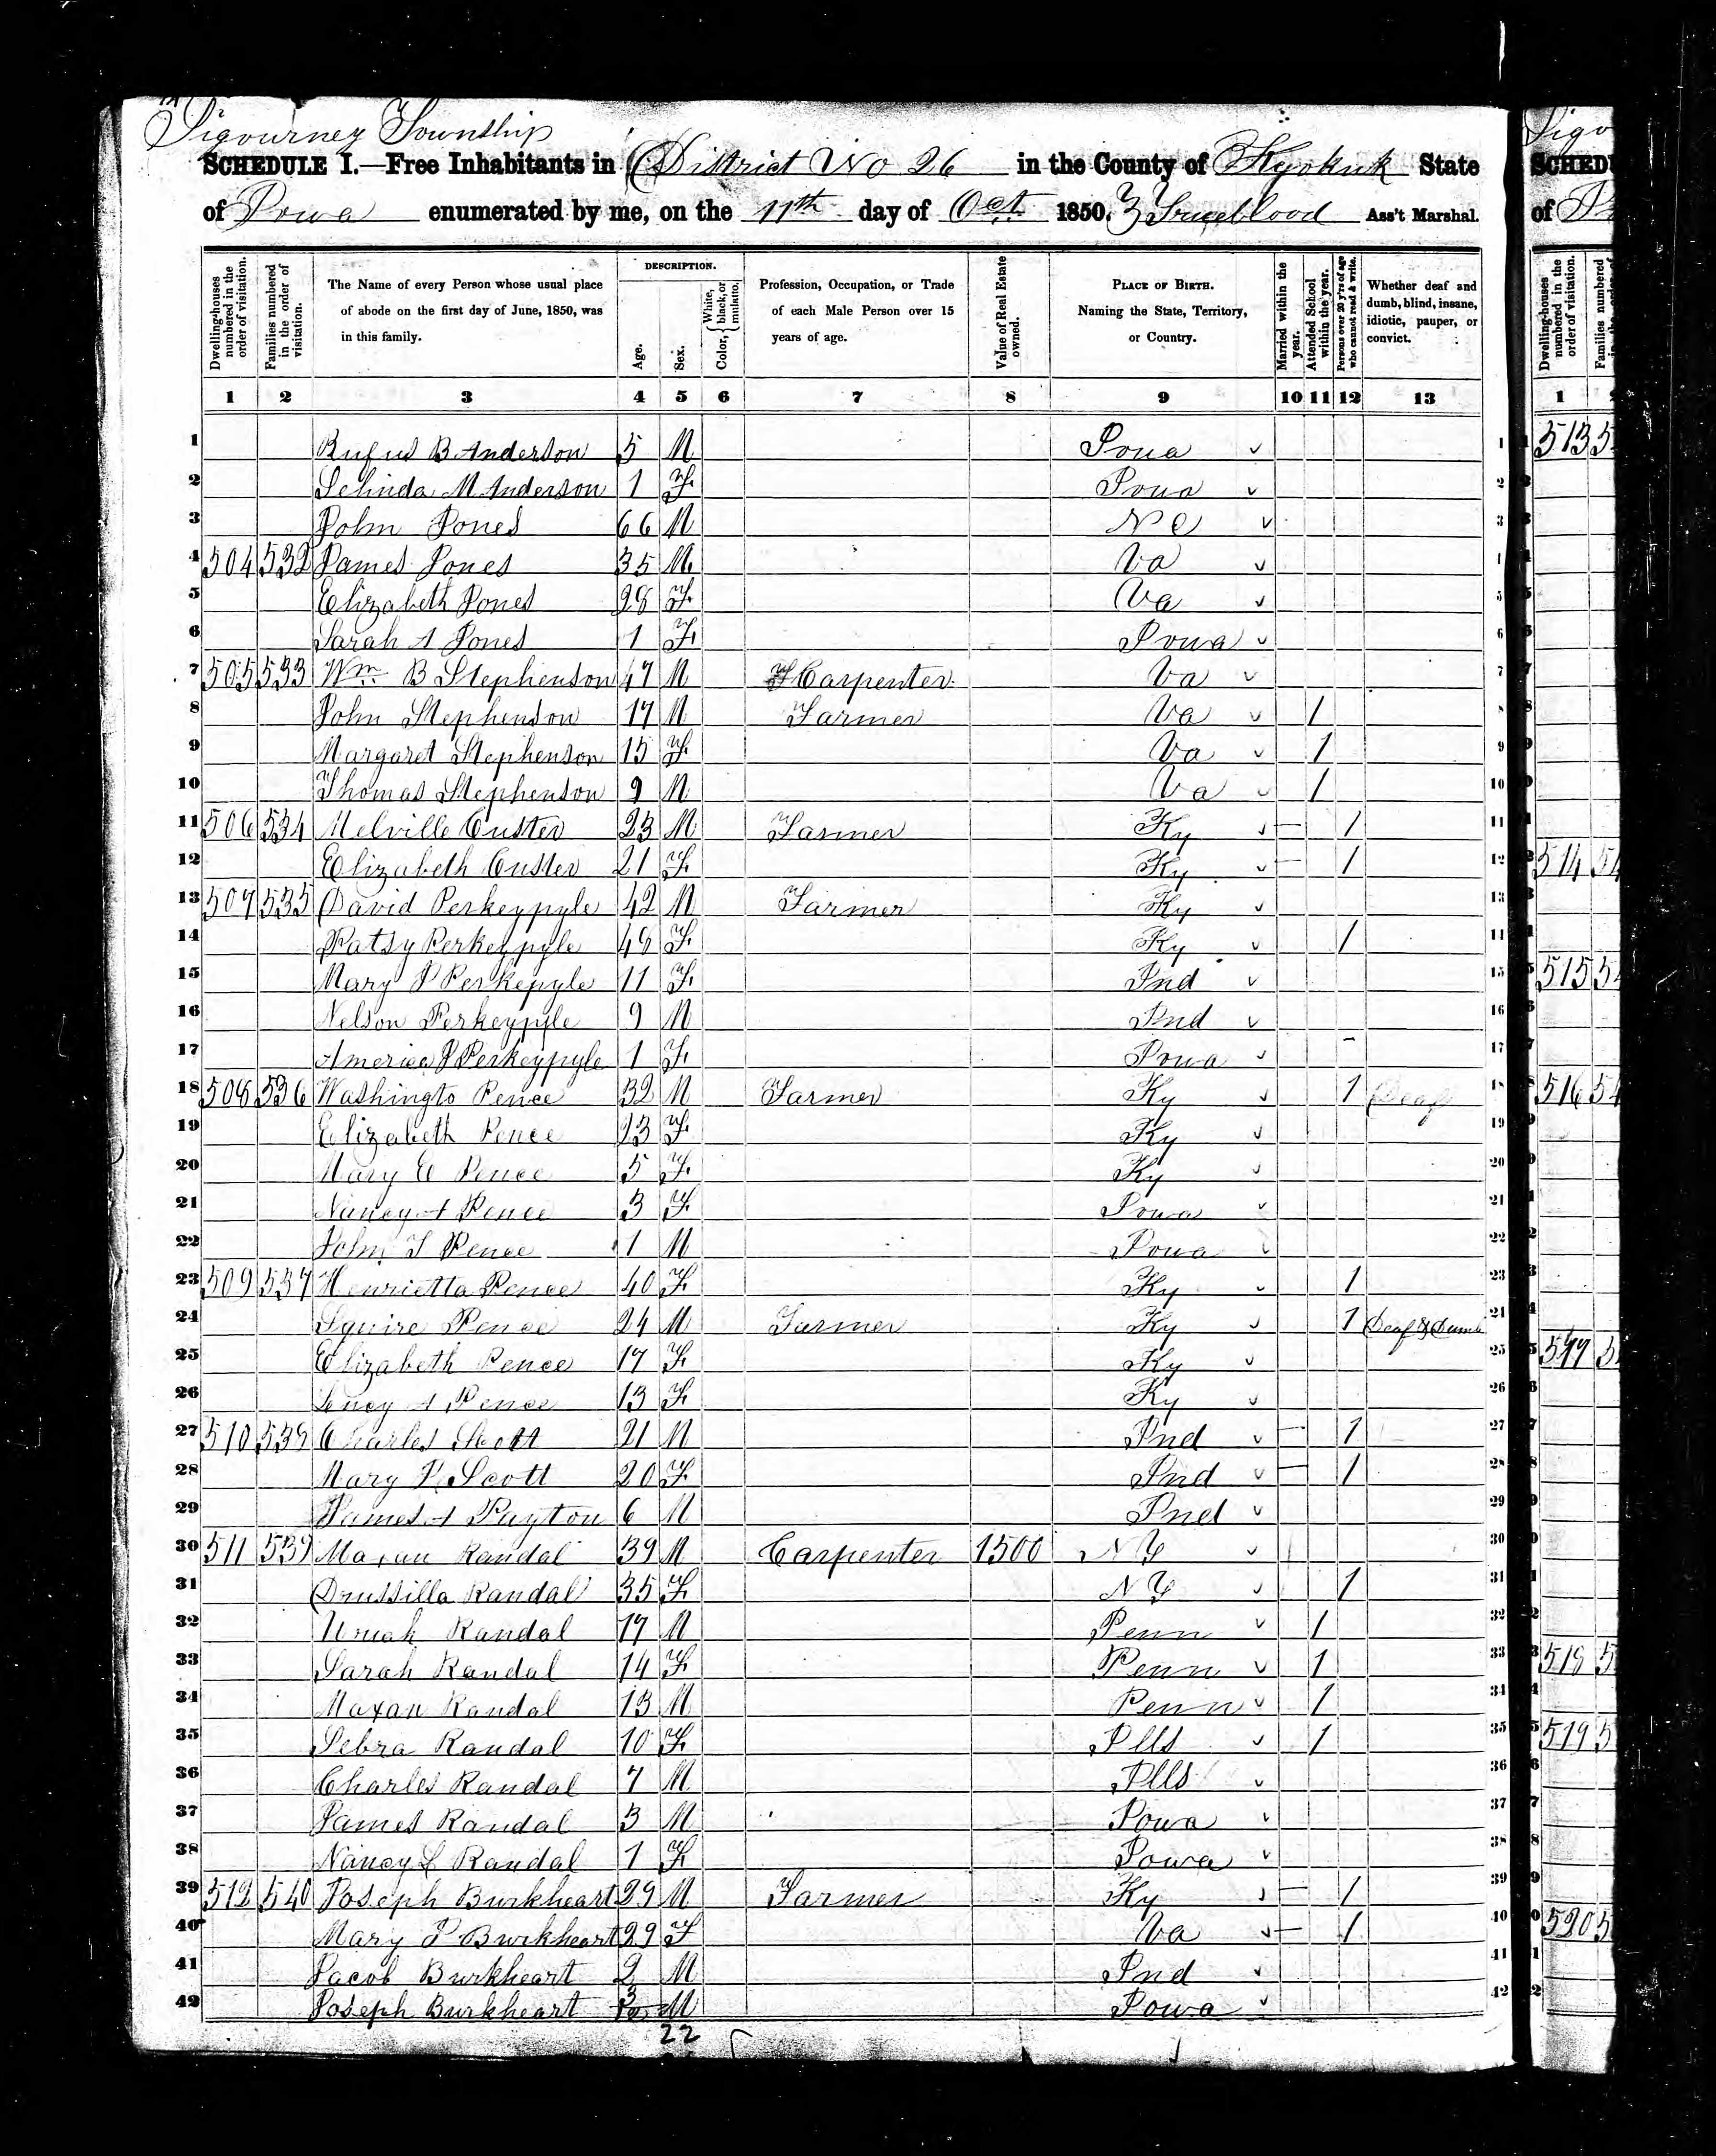 Sigourney Township
SCHEDULE I.—Free Inhabitants in District No 26 in the County of Kyokuk State
of Iowa enumerated by me, on the 11th day of Oct 1850. Trueblood Ass't Marshal.
Dwelling-houses numbered in the order of visitation.
Families numbered in the order of visitation.
The Name of every Person whose usual place of abode on the first day of June, 1850, was in this family.
DESCRIPTION.
Age.
Sex.
Color, { White, black, or mulatto.
Profession, Occupation, or Trade of each Male Person over 15 years of age.
Value of Real Estate owned.
PLACE OF BIRTH. Naming the State, Territory, or Country.
Married within the year.
Attended School within the year.
Persons over 20 y'rs of age who cannot read & write.
Whether deaf and dumb, blind, insane, idiotic, pauper, or convict.
1 2 3 4 5 6 7 8 9 10 11 12 13
1 Rufus B Anderson 5 M Iowa 1
2 M Anderson 1 F Iowa 2
3 John Jones 66 M N C 3
4 504 532 James Jones 35 M Va
5 Elizabeth Jones 28 F Va 5
6 Sarah A Jones 1 F Iowa 6
7 505 533 Wm B Stephenson 47 M Carpenter Va 7
8 John Stephenson 17 M Farmer Va 1 8
9 Margaret Stephenson 15 F Va 1 9
10 Thomas Stephenson 9 M Va 1 10
11 506 534 Melville Custer 23 M Farmer Ky — 1 11
12 Elizabeth Custer 21 F Ky — 1 12
13 507 535 David Perkeypyle 42 M Farmer Ky 13
14 Patsy Perkeypyle 48 F Ky 1 14
15 Mary J Perkepyle 11 F Ind 15
16 Nelson Perkeypyle 9 M Ind 16
17 America J Perkeypyle 1 F Iowa 17
18 508 536 Washingto Pence 32 M Farmer Ky 1 Deaf 18
19 Elizabeth Pence 23 F Ky 19
20 Mary E Pence 5 F Ky 20
21 Nancy A Pence 3 F Iowa 21
22 John T Pence 1 M Iowa 22
23 509 537 Henrietta Pence 40 F Ky 1 23
24 Squire Pence 24 M Farmer Ky 1 Deaf & Dumb 24
25 Elizabeth Pence 17 F Ky 25
26 Lucy A Pence 13 F Ky 26
27 510 538 Charles Scott 21 M Ind — 1 27
28 Mary Scott 20 F Ind — 1 28
29 James A Payton 6 M Ind 29
30 511 539 Maxan Randal 39 M Carpenter 1500 N Y 30
31 Drussilla Randal 35 F N Y 1 31
32 Uriah Randal 17 M Penn 1 32
33 Sarah Randal 14 F Penn 1 33
34 Maxan Randal 13 M Penn 1 34
35 Sebra Randal 10 F Ills 1 35
36 Charles Randal 7 M Ills 36
37 James Randal 3 M Iowa 37
38 Nancy L Randal 1 F Iowa 38
39 512 540 Joseph Burkheart 29 M Farmer Ky — 1 39
40 Mary J Burkheart 29 F Va — 1 40
41 Jacob Burkheart 2 M Ind 41
42 Joseph Burkheart M Iowa 42
22
Sigo
SCHEDU
of
Dwelling-houses numbered in the order of visitation.
Families numbered
1
513 5
514 54
515 5
516 54
517
518 5
519 5
520 5